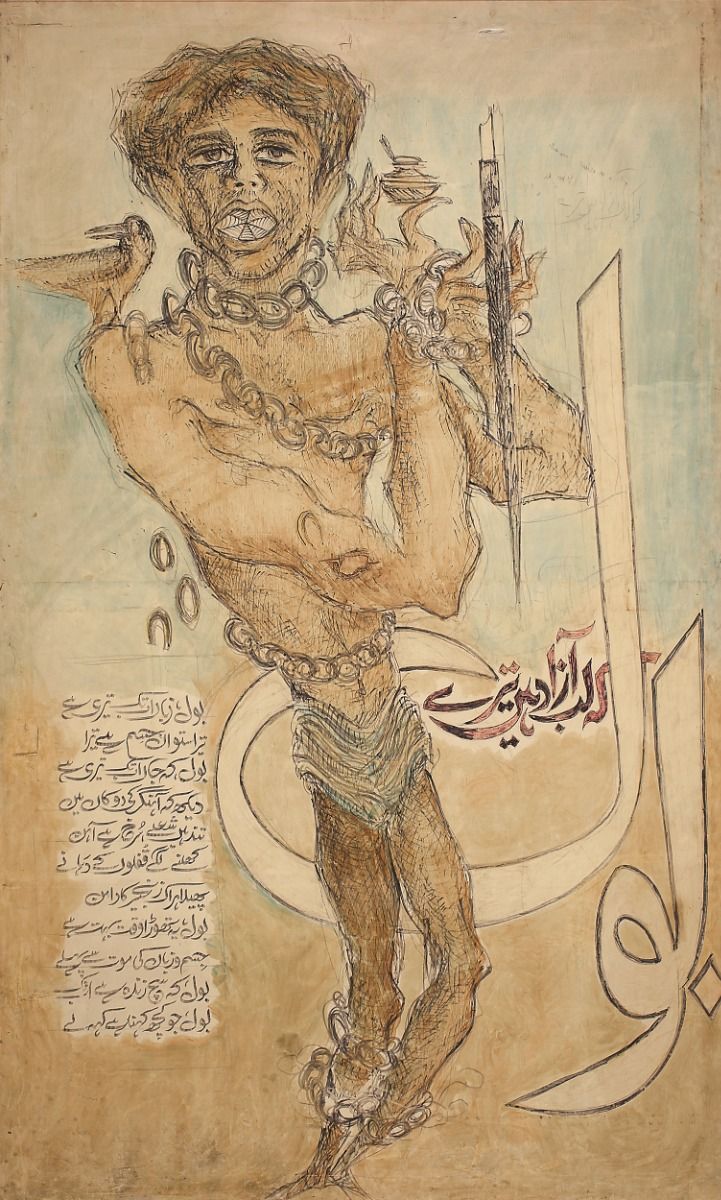 بول
کہ لب آزاد ہیں تیرے
بول زباں اب تک تیری ہے
تیرا ستواں جسم ہے تیرا
بول کہ جاں اب تک تیری ہے
دیکھ کہ آہنگر کی دوکاں میں
تند ہیں شعلے سرخ ہے آہن
کھلنے لگے قفلوں کے دہانے
پھیلا ہر اک زنجیر کا دامن
بول یہ تھوڑا وقت بہت ہے
جسم و زباں کی موت سے پہلے
بول کہ سچ زندہ ہے اب تک
بول جو کچھ کہنا ہے کہہ لے